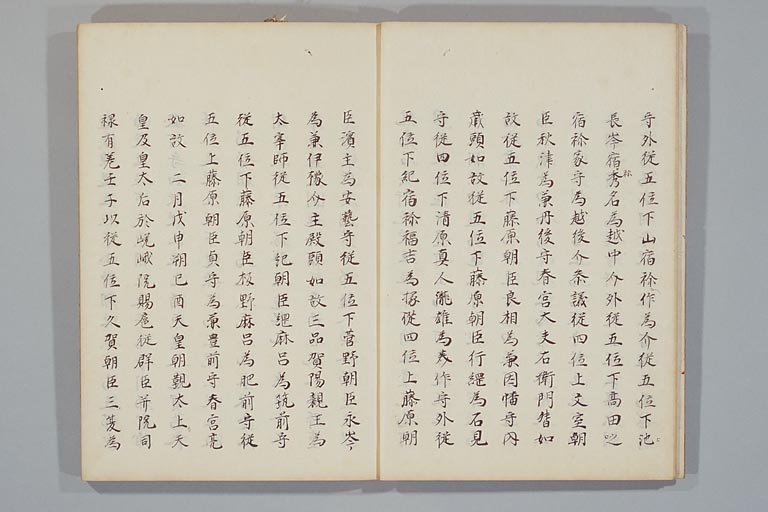 守外從五位下山宿祢作為介從五位下池
長岑宿祢秀名為越中介外從五位下高田
宿祢家守為越後介參議從四位上文室朝
臣秋津為兼丹後守春宮大夫右衛門督如
故從五位下藤原朝臣良相為兼因幡守內
蔵頭如故從五位下藤原朝臣行繩為石見
守從四位下清原真人瀧雄為美作守外從
五位下紀宿祢福吉為掾從四位上藤原朝
臣濱主為安藝守從五位下菅野朝臣永岑
為兼伊豫介主殿頭如故三品賀陽親王為
太宰帥從五位下記朝臣繩麻呂為筑前守
從五位下藤原朝臣板野麻呂為肥前守從
五位上藤原朝臣貞守為兼豊前守春宮亮
如故二月戊申朔己酉天皇朝覲太上天
皇及皇太后於嵯峨院賜扈從群臣并院司
祿有差壬子以從五位下久賀朝臣三夏為